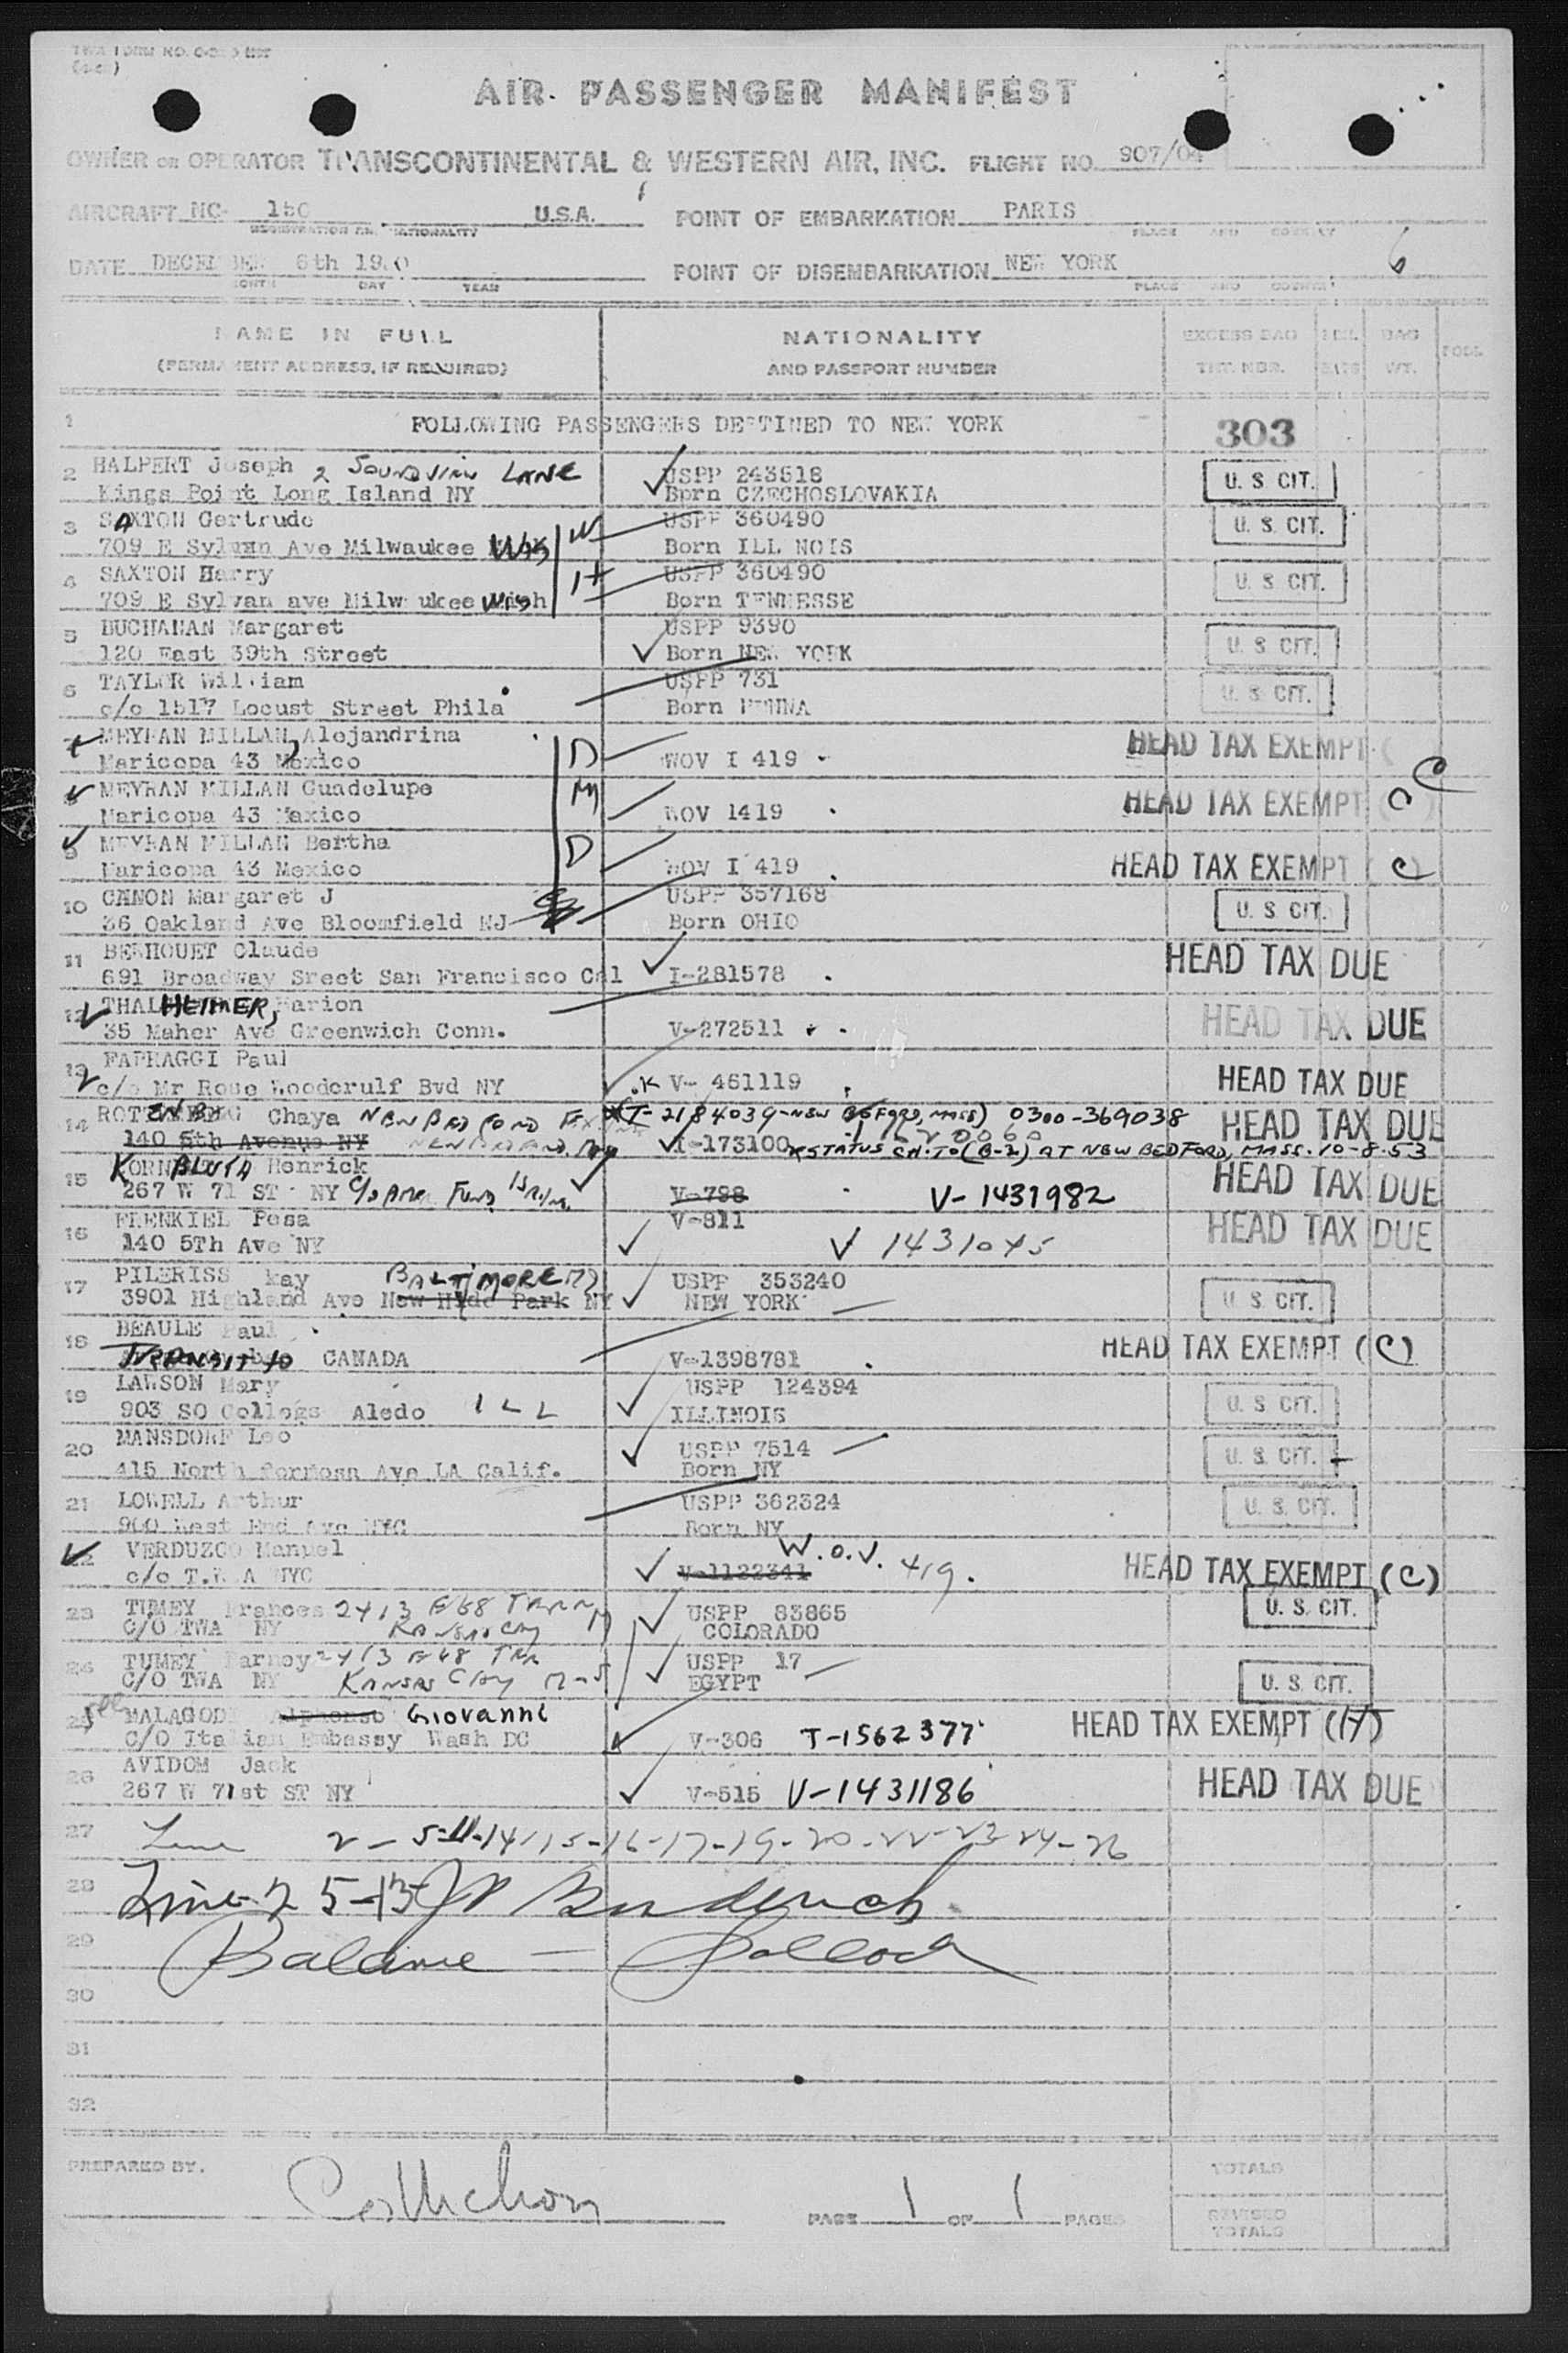 AIR PASSENGER MANIFEST
OWNER OR OPERATOR TRANSCONTINENTAL & WESTERN AIR, INC. FLIGHT NO. 907/04
AIRCRAFT NC- U.S.A. POINT OF EMBARKATION PARIS
PLACE AND COUNTRY
DATE DECEMBER 6th POINT OF DISEMBARKATION NEW YORK 6
MONTH DAY YEAR PLACE AND COUNTRY
NAME IN FULL NATIONALITY EXCESS BAG BAG
(PERMANENT ADDRESS, IF REQUIRED) AND PASSPORT NUMBER TKT. NBR. WT.
1 FOLLOWING PASSENGERS DESTINED TO NEW YORK 303
2 HALPERT Joseph 2 SOUNDVIEW LANE USPP 243518 U. S. CIT.
Kings Point Long Island NY Born CZECHOSLOVAKIA
3 SAXTON Gertrude W USPP 360490 U. S. CIT.
709 E Sylvan Ave Milwaukee Wis Born ILL NOIS
4 SAXTON Harry H USPP 360490 U. S. CIT.
709 E Sylvan ave Milw ukee Wis Born TENNESSE
5 BUCHANAN Margaret USPP 9390 U. S. CIT.
120 East 39th Street Born NEW YORK
6 TAYLOR William USPP 731 U. S. CIT.
c/o 1517 Locust Street Phila Born
7 MEYRAN MILLAN, Alejandrina D HEAD TAX EXEMPT (
Maricopa 43 Mexico WOV I 419
8 MEYRAN MILLAN Guadelupe M HEAD TAX EXEMPT (C)
Maricopa 43 Mexico WOV 1419
9 MEYRAN MILLAN Bertha D
Maricopa 43 Mexico WOV I 419 HEAD TAX EXEMPT (C)
10 CANON Margaret J USPP 357168 U. S. CIT.
36 Oakland Ave Bloomfield NJ Born OHIO
11 BENHOUET Claude HEAD TAX DUE
691 Broadway Sreet San Francisco Cal I-281578
12 THALHEIMER, Marion HEAD TAX DUE
35 Maher Ave Greenwich Conn. V-272511
13 FARHAGGI Paul
c/o Mr Rose Woodcrulf Bvd NY V- 461119 HEAD TAX DUE
14 ROTTENBERG Chaya NEW BEDFORD (T-2184039-NEW BEDFORD, MASS) 0300-369038 HEAD TAX DUE
140 5th Avenue NY I-173100 STATUS CH. TO (B-2) AT NEW BEDFORD, MASS. 10-8-53
15 KORNBLUTA Henrick HEAD TAX DUE
267 W 71 ST NY C/O AMER FUND V-798 V-1431982
16 FRENKIEL Pesa V-811 HEAD TAX DUE
140 5Th Ave NY V 1431045
17 PILERISS Kay BALTIMORE MD USPP 353240 U. S. CIT.
3901 Highland Ave New Hyde Park NY NEW YORK
18 BEAULE Paul
TRANSIT to CANADA V-1398781 HEAD TAX EXEMPT (C)
19 LAWSON Mary USPP 124394 U. S. CIT.
903 SO College Aledo ILL ILLINOIS
20 MANSDORF Leo USPP 7514 U. S. CIT.
415 North Formosa Ave LA Calif. Born NY
21 LOWELL Arthur USPP 362324 U. S. CIT.
900 West End Ave NYC Born NY
22 VERDUZCO Manuel W.O.V. 419. HEAD TAX EXEMPT (C)
c/o T.W.A NYC V-1122341
23 TUMEY Frances 2413 E 68 TERR USPP 83865 U. S. CIT.
C/O TWA NY KANSAS City COLORADO
24 TUMEY Barney 2413 E 68 TRR USPP 17 U. S. CIT.
C/O TWA NY KANSAS City EGYPT
25 MALAGODI Alphonso Giovanni HEAD TAX EXEMPT (H)
C/O Italian Embassy Wash DC V-306 T-1562377
26 AVIDOM Jack HEAD TAX DUE
267 W 71st ST NY V-515 V-1431186
27 Line 2-5-11-14-15-16-17-19-20-22-23 24-26
28 Line 2 5-13
29 Balance - Pollock
30
31
32
PREPARED BY. PAGE 1 OF 1 PAGES TOTALS
REVISED
TOTALS